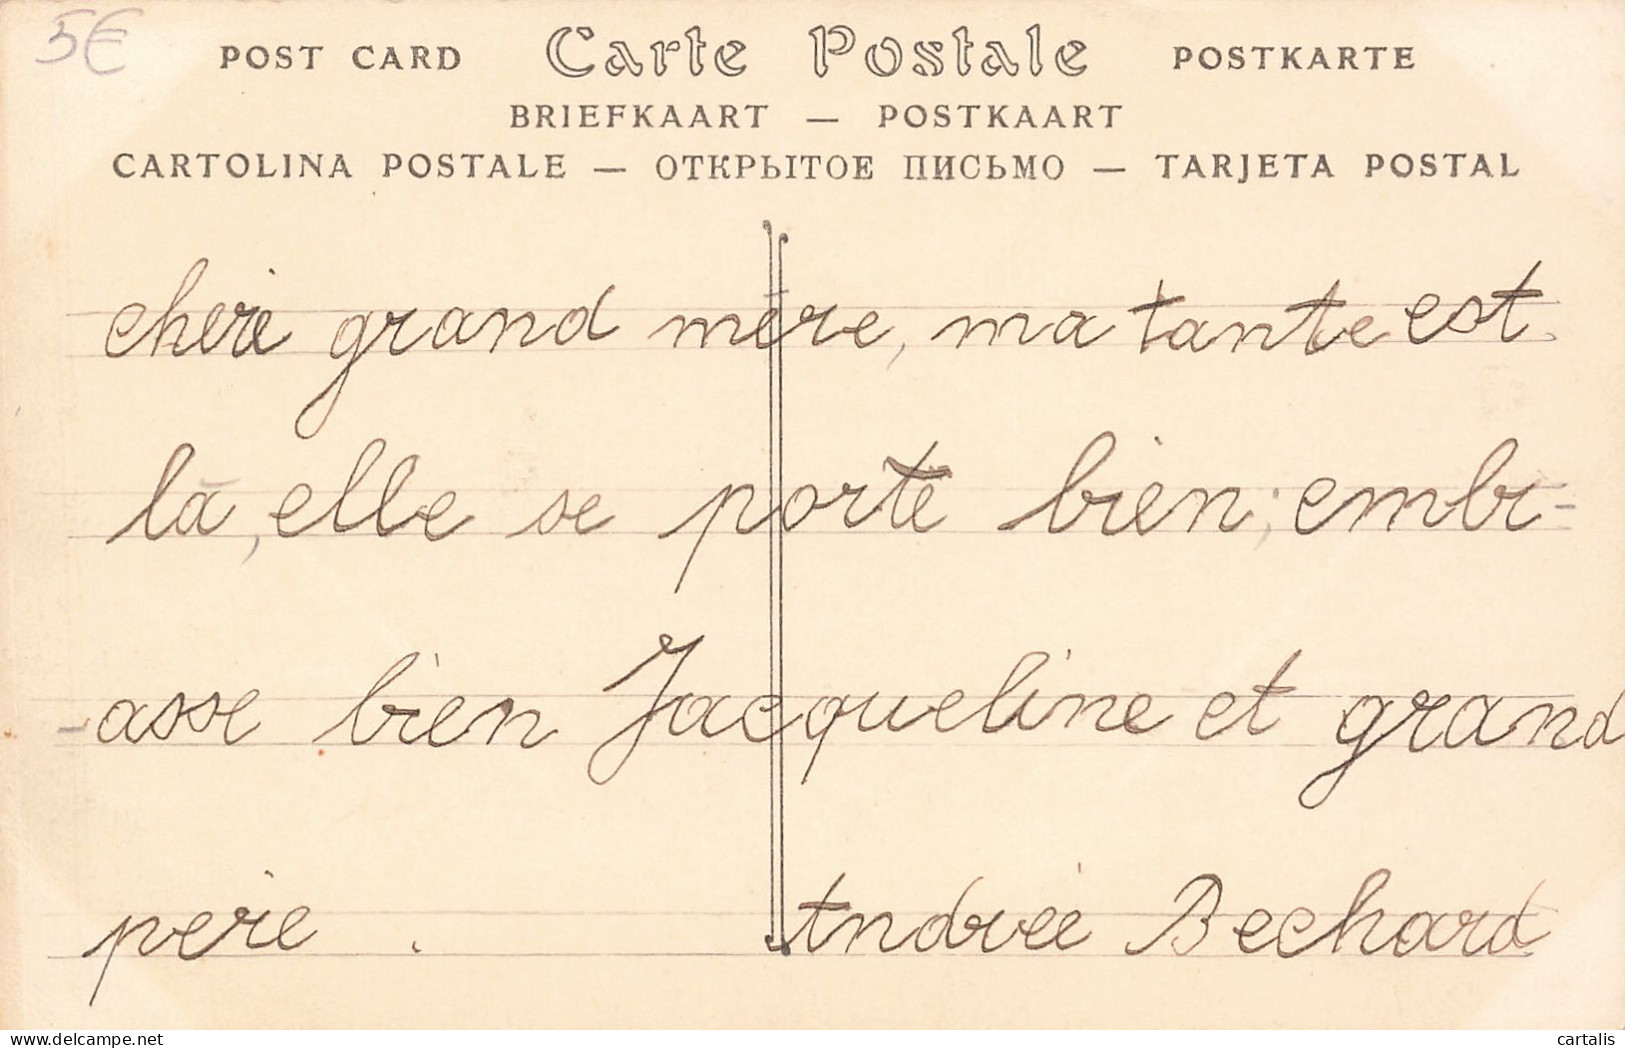 5€
POST CARD Carte Postale POSTKARTE
BRIEFKAART — POSTKAART
CARTOLINA POSTALE — ОТКРЫТОЕ ПИСЬМО — TARJETA POSTAL
cherie grand mère, ma tante est
là, elle se porte bien; embr-
-asse bien Jacqueline et grand
père . Andrée Bechard
cartalis